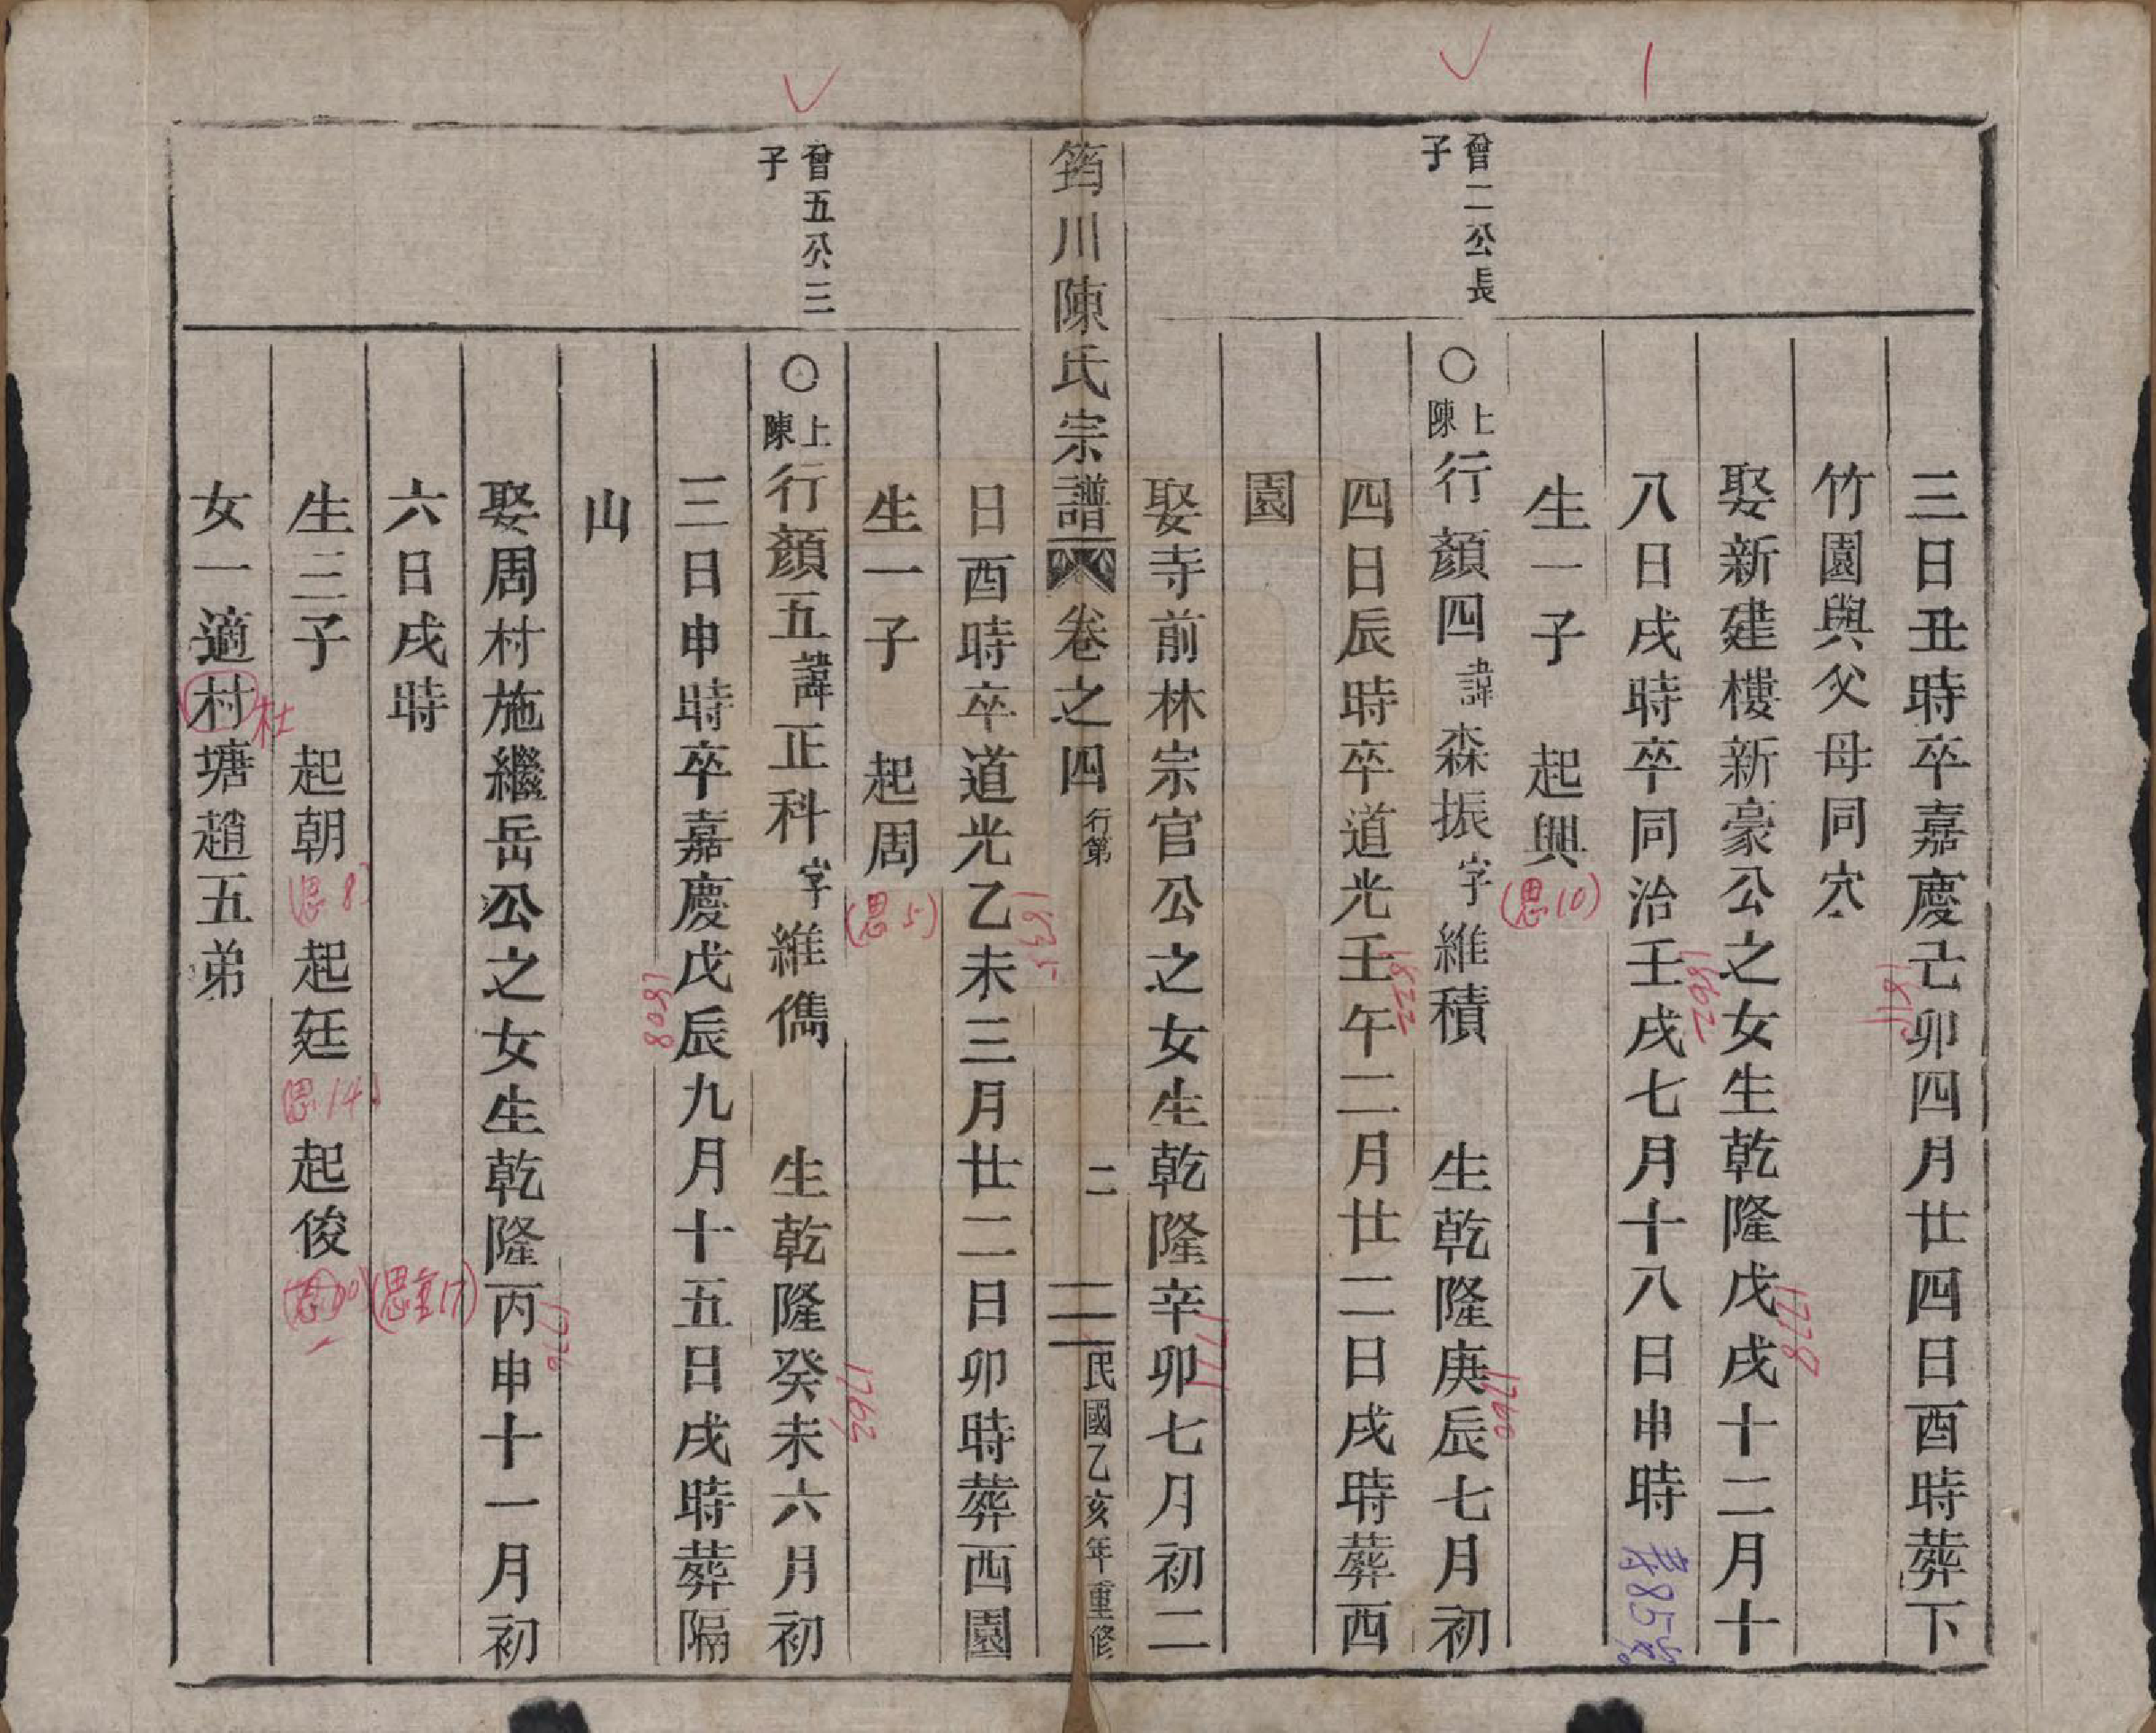 三日丑時卒嘉慶己卯四月廿四日酉時葬下
1815
竹園與父母同穴
娶新建樓新豪公之女生乾隆戊戌十二月十
1778
八日戌時卒同治壬戌七月十八日申時
1862
寿85岁
生一子 起興
(思10)
曾二公長子
○上陳行顏四諱森振字維積 生乾隆庚辰七月初
1760
四日辰時卒道光壬午二月廿二日戌時葬西
1822
園
娶寺前林宗官公之女生乾隆辛卯七月初二
1771
筠川陳氏宗譜 卷之四 行第 二 民國乙亥年重修
日酉時卒道光乙未三月廿二日卯時葬西園
1835
生一子 起周
(思5)
曾五公三子
○上陳行顏五諱正科字維儁 生乾隆癸未六月初
1762
三日申時卒嘉慶戊辰九月十五日戌時葬隔
1808
山
娶周村施繼岳公之女生乾隆丙申十一月初
1776
六日戌時
生三子 起朝 起廷 起俊
(思8)
思14
(思重17)
女一適村塘趙五弟
杜